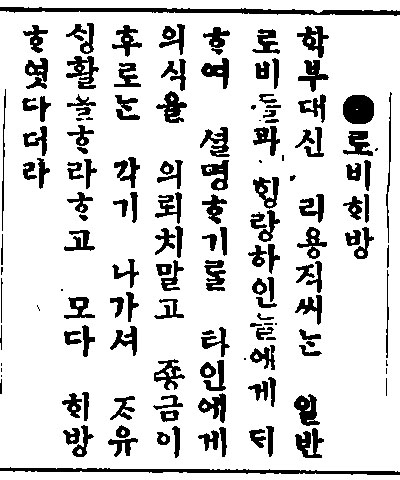 ●로비ᄒᆡ방
학부대신 리용직씨ᄂᆞᆫ 일반
로비들과 ᄒᆡᆼ랑하인들에게 ᄃᆡ
ᄒᆞ여 셜명ᄒᆞ기를 타인에게
의식을 의뢰치말고 죵금이
후로ᄂᆞᆫ 각기 나가셔 ᄌᆞ유
ᄉᆡᆼ활들ᄒᆞ라ᄒᆞ고 모다 ᄒᆡ방
ᄒᆞ엿다더라